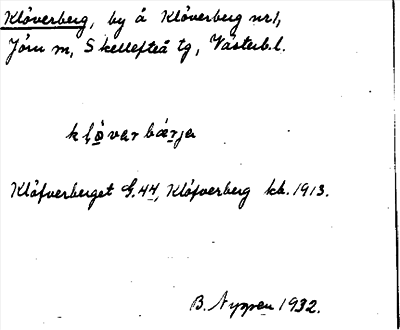 Klöverberg, by å Klöverberg nr 1,
Jörn m, Skellefteå tg, Västerb.l.
klövarbärja
Klöfverberget G.44, Klöfverberg kk. 1913.
B. Nyman 1932.